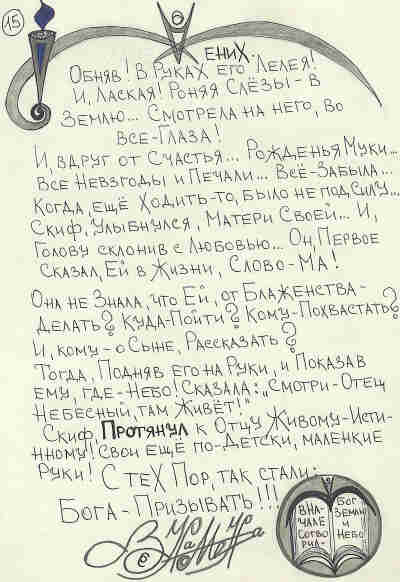 15
ЕНИХ.
ОБНЯВ! В РУКАХ ЕГО ЛЕЛЕЯ!
И, ЛАСКАЯ! РОНЯЯ СЛЁЗЫ-В
ЗЕМЛЮ... СМОТРЕЛА НА НЕГО, ВО
ВСЕ-ГЛАЗА!
И, ВДРУГ ОТ СЧАСТЬЯ... РОЖДЕНЬЯ МУКИ...
ВСЕ НЕВЗГОДЫ И ПЕЧАЛИ... ВСЁ-ЗАБЫЛА...
КОГДА, ЕЩЁ ХОДИТЬ-ТО, БЫЛО НЕ ПОД СИЛУ...
СКИФ, УЛЫБНУЛСЯ, МАТЕРИ СВОЕЙ... И,
ГОЛОВУ СКЛОНИВ С ЛЮБОВЬЮ... ОН, ПЕРВОЕ
СКАЗАЛ, ЕЙ В ЖИЗНИ, СЛОВО-МА!
ОНА НЕ ЗНАЛА, ЧТО ЕЙ, ОТ БЛАЖЕНСТВА-
ДЕЛАТЬ? КУДА-ПОЙТИ? КОМУ-ПОХВАСТАТЬ?
И, КОМУ-О СЫНЕ, РАССКАЗАТЬ?
ТОГДА, ПОДНЯВ ЕГО НА РУКИ, И ПОКАЗАВ
ЕМУ, ГДЕ-НЕБО! СКАЗАЛА: „СМОТРИ-ОТЕЦ
НЕБЕСНЫЙ, ТАМ ЖИВЁТ!"
СКИФ, ПРОТЯНУЛ К ОТЦУ ЖИВОМУ-ИСТИ-
ННОМУ! СВОИ ЕЩЁ ПО-ДЕТСКИ, МАЛЕНКИЕ
РУКИ! С ТЕХ ПОР, ТАК СТАЛИ:
БОГА-ПРИЗЫВАТЬ!!!
В НА-
ЧАЛЕ
СОТВО
РИЛ-
БОГ
ЗЕМЛЮ
И
НЕБО